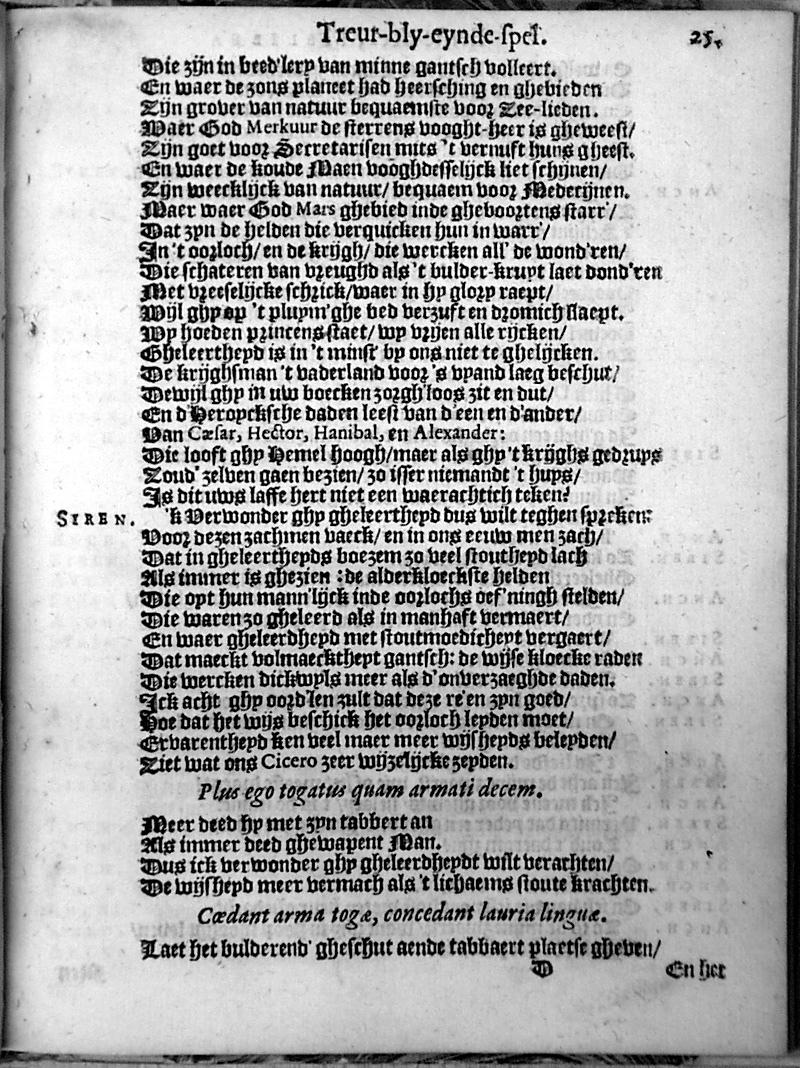 Treur-bly-eynde-spel. 25.
Die zijn in beed'lery van minne gantsch volleert.
En waer de zons planeet had heersching en ghebieden
Zijn grover van natuur bequaemste voor Zee-lieden.
Waer God Merkuur de sterrens vooght-heer is gheweest/
Zijn goet voor Secretarisen mits 't vernuft huns gheest.
En waer de koude Maen vooghdesselijck liet schijnen/
Zijn weecklijck van natuur/ bequaem voor Medecijnen.
Maer waer God Mars ghebied inde gheboortens starr'/
Dat zyn de helden die verquicken hun in warr'/
In 't oorloch/ en de krijgh/ die wercken all' de wond'ren/
Die schateren van vreughd als 't bulder-kruyt laet dond'ren
Met vreeselijcke schrick/waer in hy glory raept/
Wijl ghy op 't pluym'ghe bed verzuft en dromich slaept.
Wy hoeden princens staet/ wy vrijen alle rijcken/
Gheleertheyd is in 't minst by ons niet te ghelijcken.
De krijghsman 't vaderland voor 's vyand laeg beschut/
Dewijl ghy in uw boecken zorgh'loos zit en dut/
En d'Heroycksche daden leest van d'een en d'ander/
Van Cæsar, Hector, Hanibal, en Alexander:
Die looft ghy Hemel hoogh/maer als ghy 't krijghs gedruys
Zoud' zelven gaen bezien/ zo isser niemandt 't huys/
Is dit uws laffe hert niet een waerachtich teken?
SIREN. 'k Verwonder ghy gheleertheyd dus wilt teghen spreken:
Voor dezen zachmen vaeck/ en in ons eeuw men zach/
Dat in gheleertheyds boezem zo veel stoutheyd lach
Als immer is ghezien : de alderkloeckste helden
Die opt hun mann'lijck inde oorlochs oef'ningh stelden/
Die waren zo gheleerd als in manhaft vermaert/
En waer gheleerdheyd met stoutmoedicheyt vergaert/
Dat maeckt volmaecktheyt gantsch: de wijse kloecke raden
Die wercken dickwyls meer als d'onverzaeghde daden.
Ick acht ghy oord'len zult dat deze re'en zyn goed/
Hoe dat het wijs beschick het oorloch leyden moet/
Ervarentheyd ken veel maer meer wijsheyds beleyden/
Ziet wat ons Cicero zeer wijzelijcke zeyden.
Plus ego togatus quam armati decem.
Meer deed hy met zyn tabbert an
Als immer deed ghewapent Man.
Dus ick verwonder ghy gheleerdheydt wilt verachten/
De wijsheyd meer vermach als 't lichaems stoute krachten.
Cædant arma togæ, concedant lauria linguæ.
Laet het bulderend' gheschut aende tabbaert plaetse gheven/
D En het